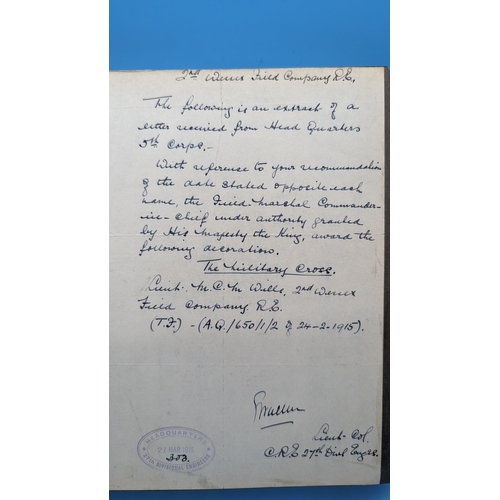 2nd Wessex Field Company R.E,
The following is an extract of a
letter received from Head Quarters
5th Corps.-
With reference to your recommendation
of the date stated opposite each
name, the Field-Marshal Commander-
in-Chief under authority granted
by His Majesty the King, award the
following decoration.
The Military Cross.
Lieut. M.C.M Wills, 2nd Wessex
Field Company. R.E.
(T.F.) - (A.Q./650/1/2 of 24-2-1915).
Lieut-Col.
C.R.E 27th Divl Engrs.
HEADQUARTERS
27TH DIVISIONAL ENGINEERS